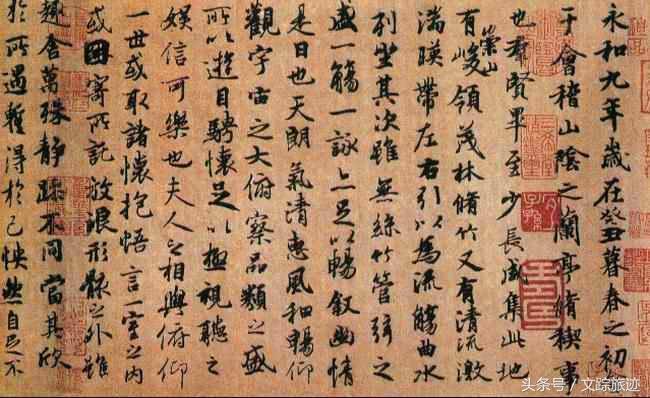 永和九年歲在癸丑暮春之初會
于會稽山陰之蘭亭脩稧事
也羣賢畢至少長咸集此地
有崇山峻領茂林脩竹又有清流激
湍暎帶左右引以為流觴曲水
列坐其次雖無絲竹管弦之
盛一觴一詠亦足以暢敘幽情
是日也天朗氣清惠風和暢仰
觀宇宙之大俯察品類之盛
所以遊目騁懷足以極視聽之
娛信可樂也夫人之相與俯仰
一世或取諸懷抱悟言一室之內
或因寄所託放浪形骸之外雖
趣舍萬殊靜躁不同當其欣
於所遇蹔得於己怏然自足不
头条号 / 文踪旅迹